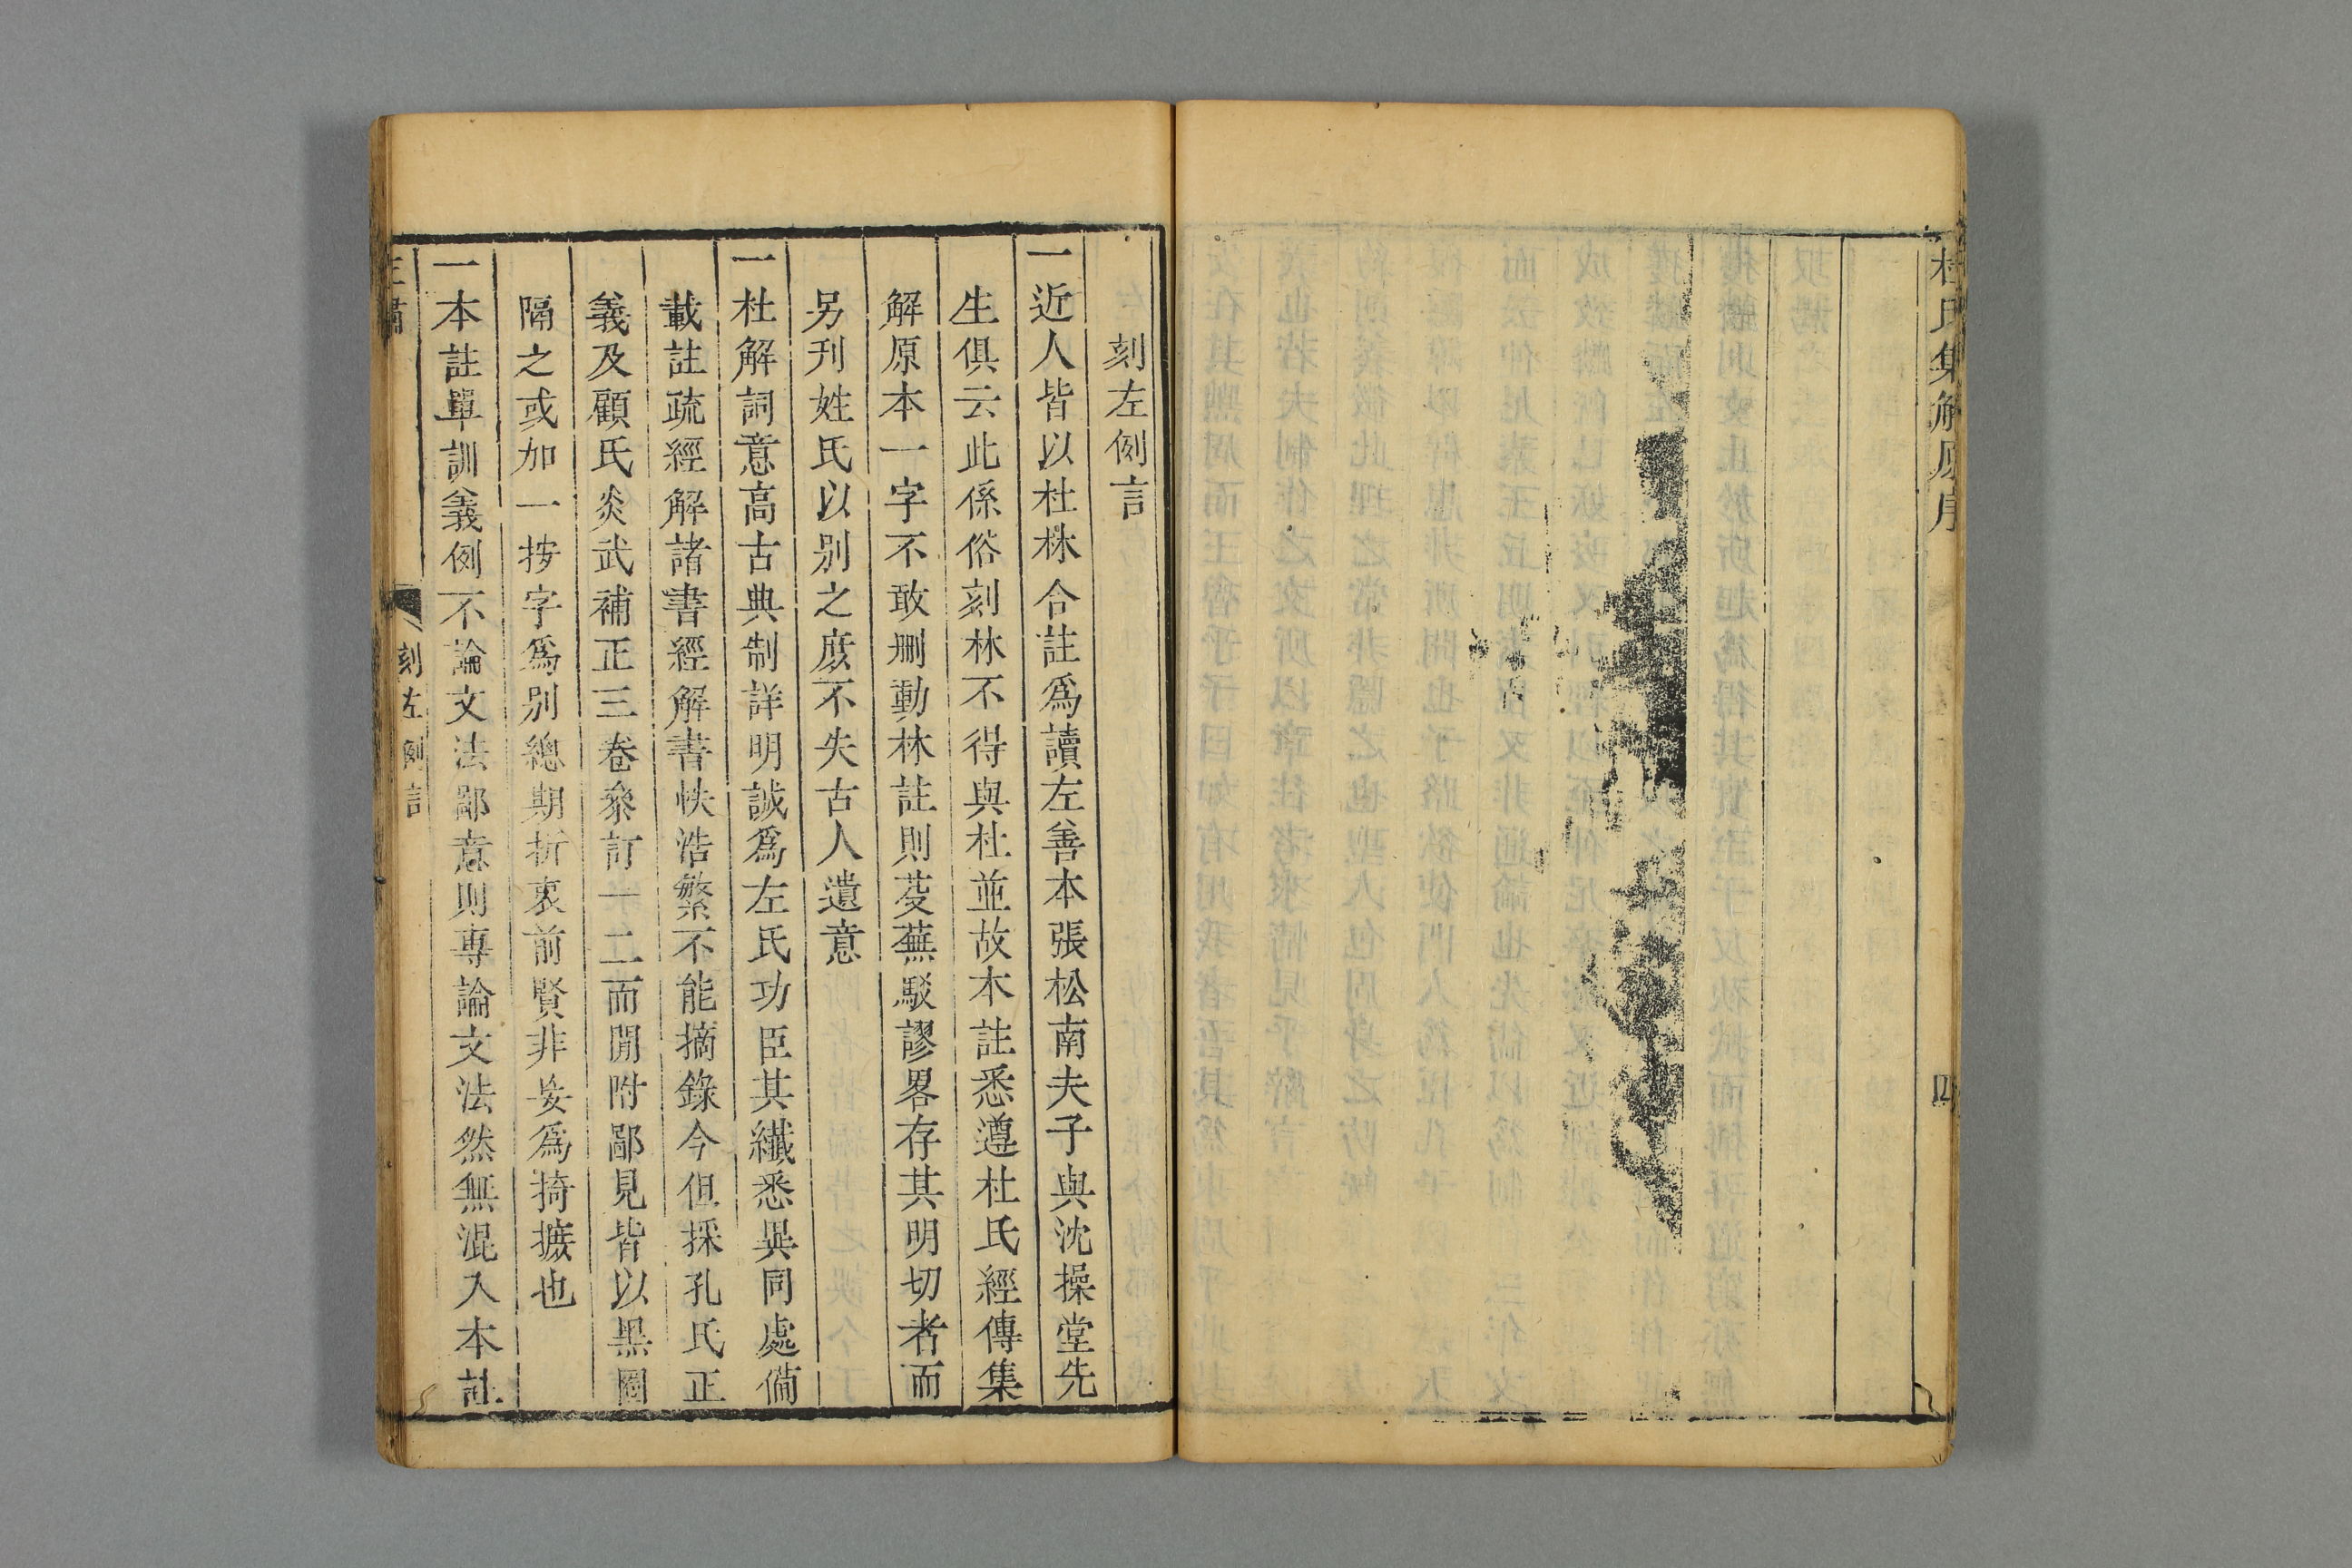 杜氏集解原序
四
刻左例言
一近人皆以杜林合註爲讀左善本張松南夫子與沈操堂先
生俱云此係俗刻林不得與杜並故木註悉遵杜氏經傳集
解原本一字不敢刪動林註則芟蕪駁謬畧存其明切者而
另刋姓氏以别之庶不失古人遺意
一杜解詞意高古典制詳明誠爲左氏功臣其纎悉異同處備
載註疏經解諸書經解書帙浩繁不能摘錄今但採孔氏正
義及顧氏炎武補正三卷叅訂一二而閒附鄙見皆以黑圈
隔之或加一按字爲别總期折衷前賢非妄爲掎摭也
一本註單訓義例不論文法鄙意則專論文法然無混入本註
刻左例言